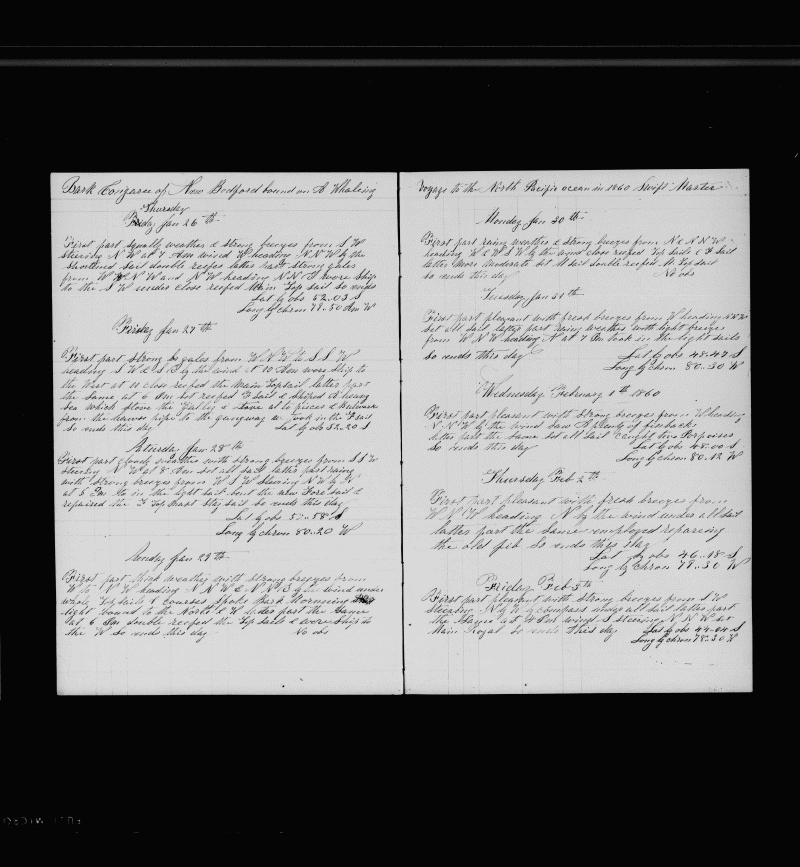 Bark Congaree of New Bedford bound on A Whaling
Thursday
Friday Jan 26th
First part squally weather & strong breezes from S W
steering N W at 7 Am wind W heading N N W by the
shortened sail double reefed latter part strong gales
from W N W and N W heading N N E wore ship
to the S W under close reefed Main Top sail so ends
Lat by obs 52..03 S
Long by chron 78..50 W
Friday Jan 27th
First part strong gales from W N W & S S W
heading S W & S by the wind at 10 Am wore ship to
the West at 11 close reefed the Main Topsail latter part
the same at 6 Am set reefed F sail & shiped A heavy
sea which stove the Galley & stove al to pieces & Bulwark
from the davis right to the gangway took in the F sail
so ends this day Lat by obs 52..20 S
Saturday Jan 28th
First part weather with strong breezes from S S W
steering N W at 8 Am set all sail latter part rainy
with strong breezes from W S W steering N W by N
at 5 Pm to in the light sail bent the new Fore sail &
repaired the F Top Mast Stay sail so ends this day
Lat by obs 58 S
Long by chron 80..20 W
Sunday Jan 29th
First part thick weather with strong breezes from
W to N W heading N N W & N N E by the wind under
whole Top sails & courses spoke Bark
bound to the North & W latter part the same
at 6 Pm double reefed the Top sails & wore ship to
the W so ends this day No obs
Voyage to the North Pacific ocean in 1860 Swift Master
Monday Jan 30th
First part rainy weather & strong breezes from N & N N W
heading W & W S W by the wind close reefed Top sails & F sail
latter More moderate set M sail double reefed M Top sail
so ends this day No obs
Tuesday Jan 31st
First part pleasant with fresh breezes from W heading N N W
set all sail latter part rainy weather with light breezes
from W N W heading N at 7 Pm took in the light sails
so ends this day Lat by obs 48..47 S
Long by chron 80..30 W
Wednesday February 1th 1860
First part pleasant with strong breezes from W heading
N N W by the wind saw A plenty of finbacks
latter part the same set all sail caught two Porpoises
so ends this day Lat by obs 48..00 S
Long by chron 80..12 W
Thursday Feb 2th
First part pleasant with fresh breezes from
W N W heading N by the wind under all sail
latter part the same employed repareing
the old jib so ends this day
Lat by obs 46..18 S
Long by chron 79..30 W
Friday Feb 3th
First part pleasant with strong breezes from S W
steering N by W by compass under all sail latter part
the same at 4 Pm wind S steering N N W set
Main Royal so ends this day Lat by obs 44..04 S
Long by chron 78..30 W